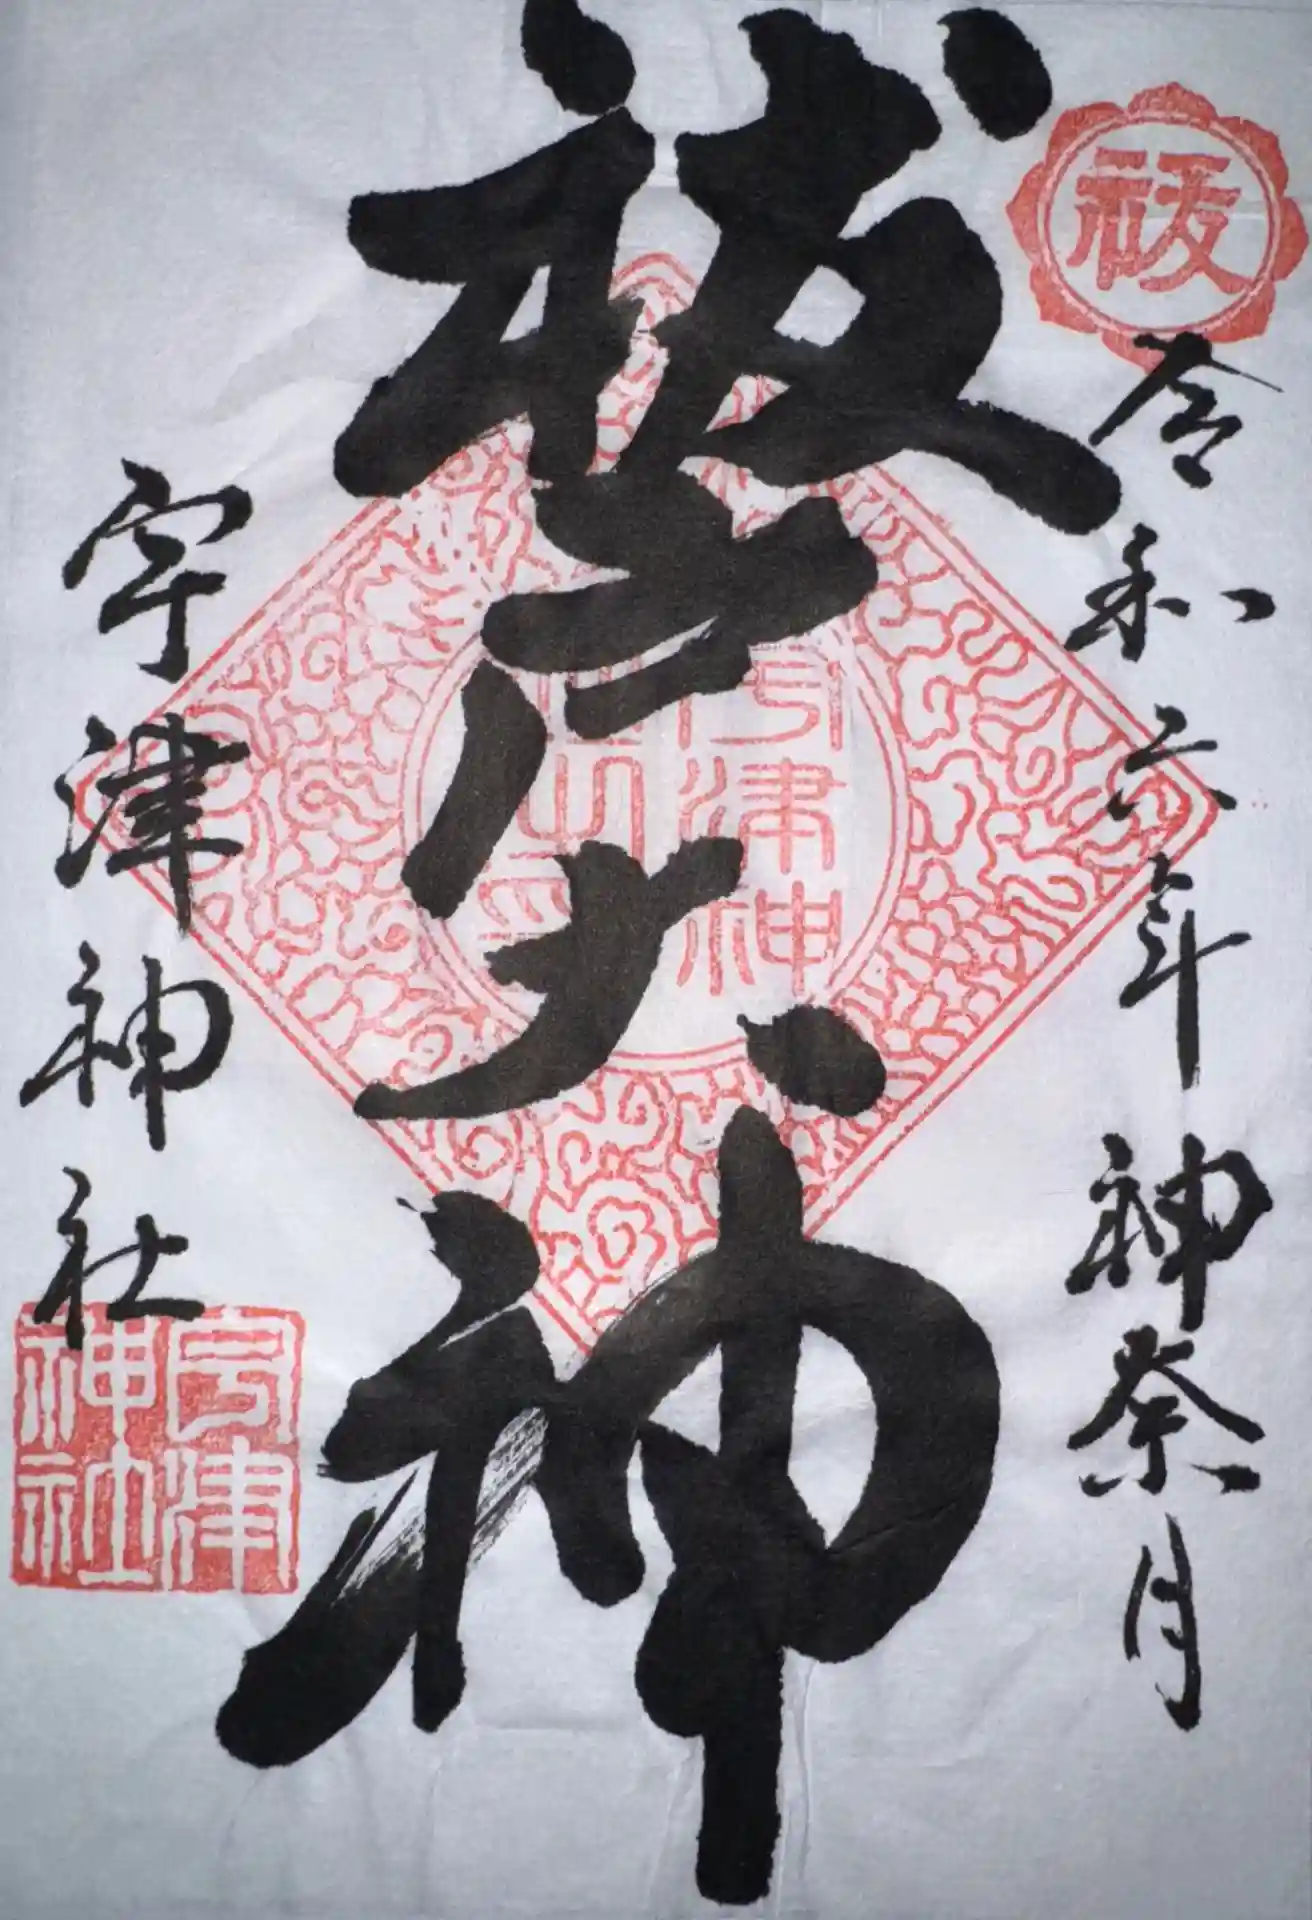 祓
令和六年 神祭月
祓戸大神
宇津神
社之印
宇津神社
宇津
神社